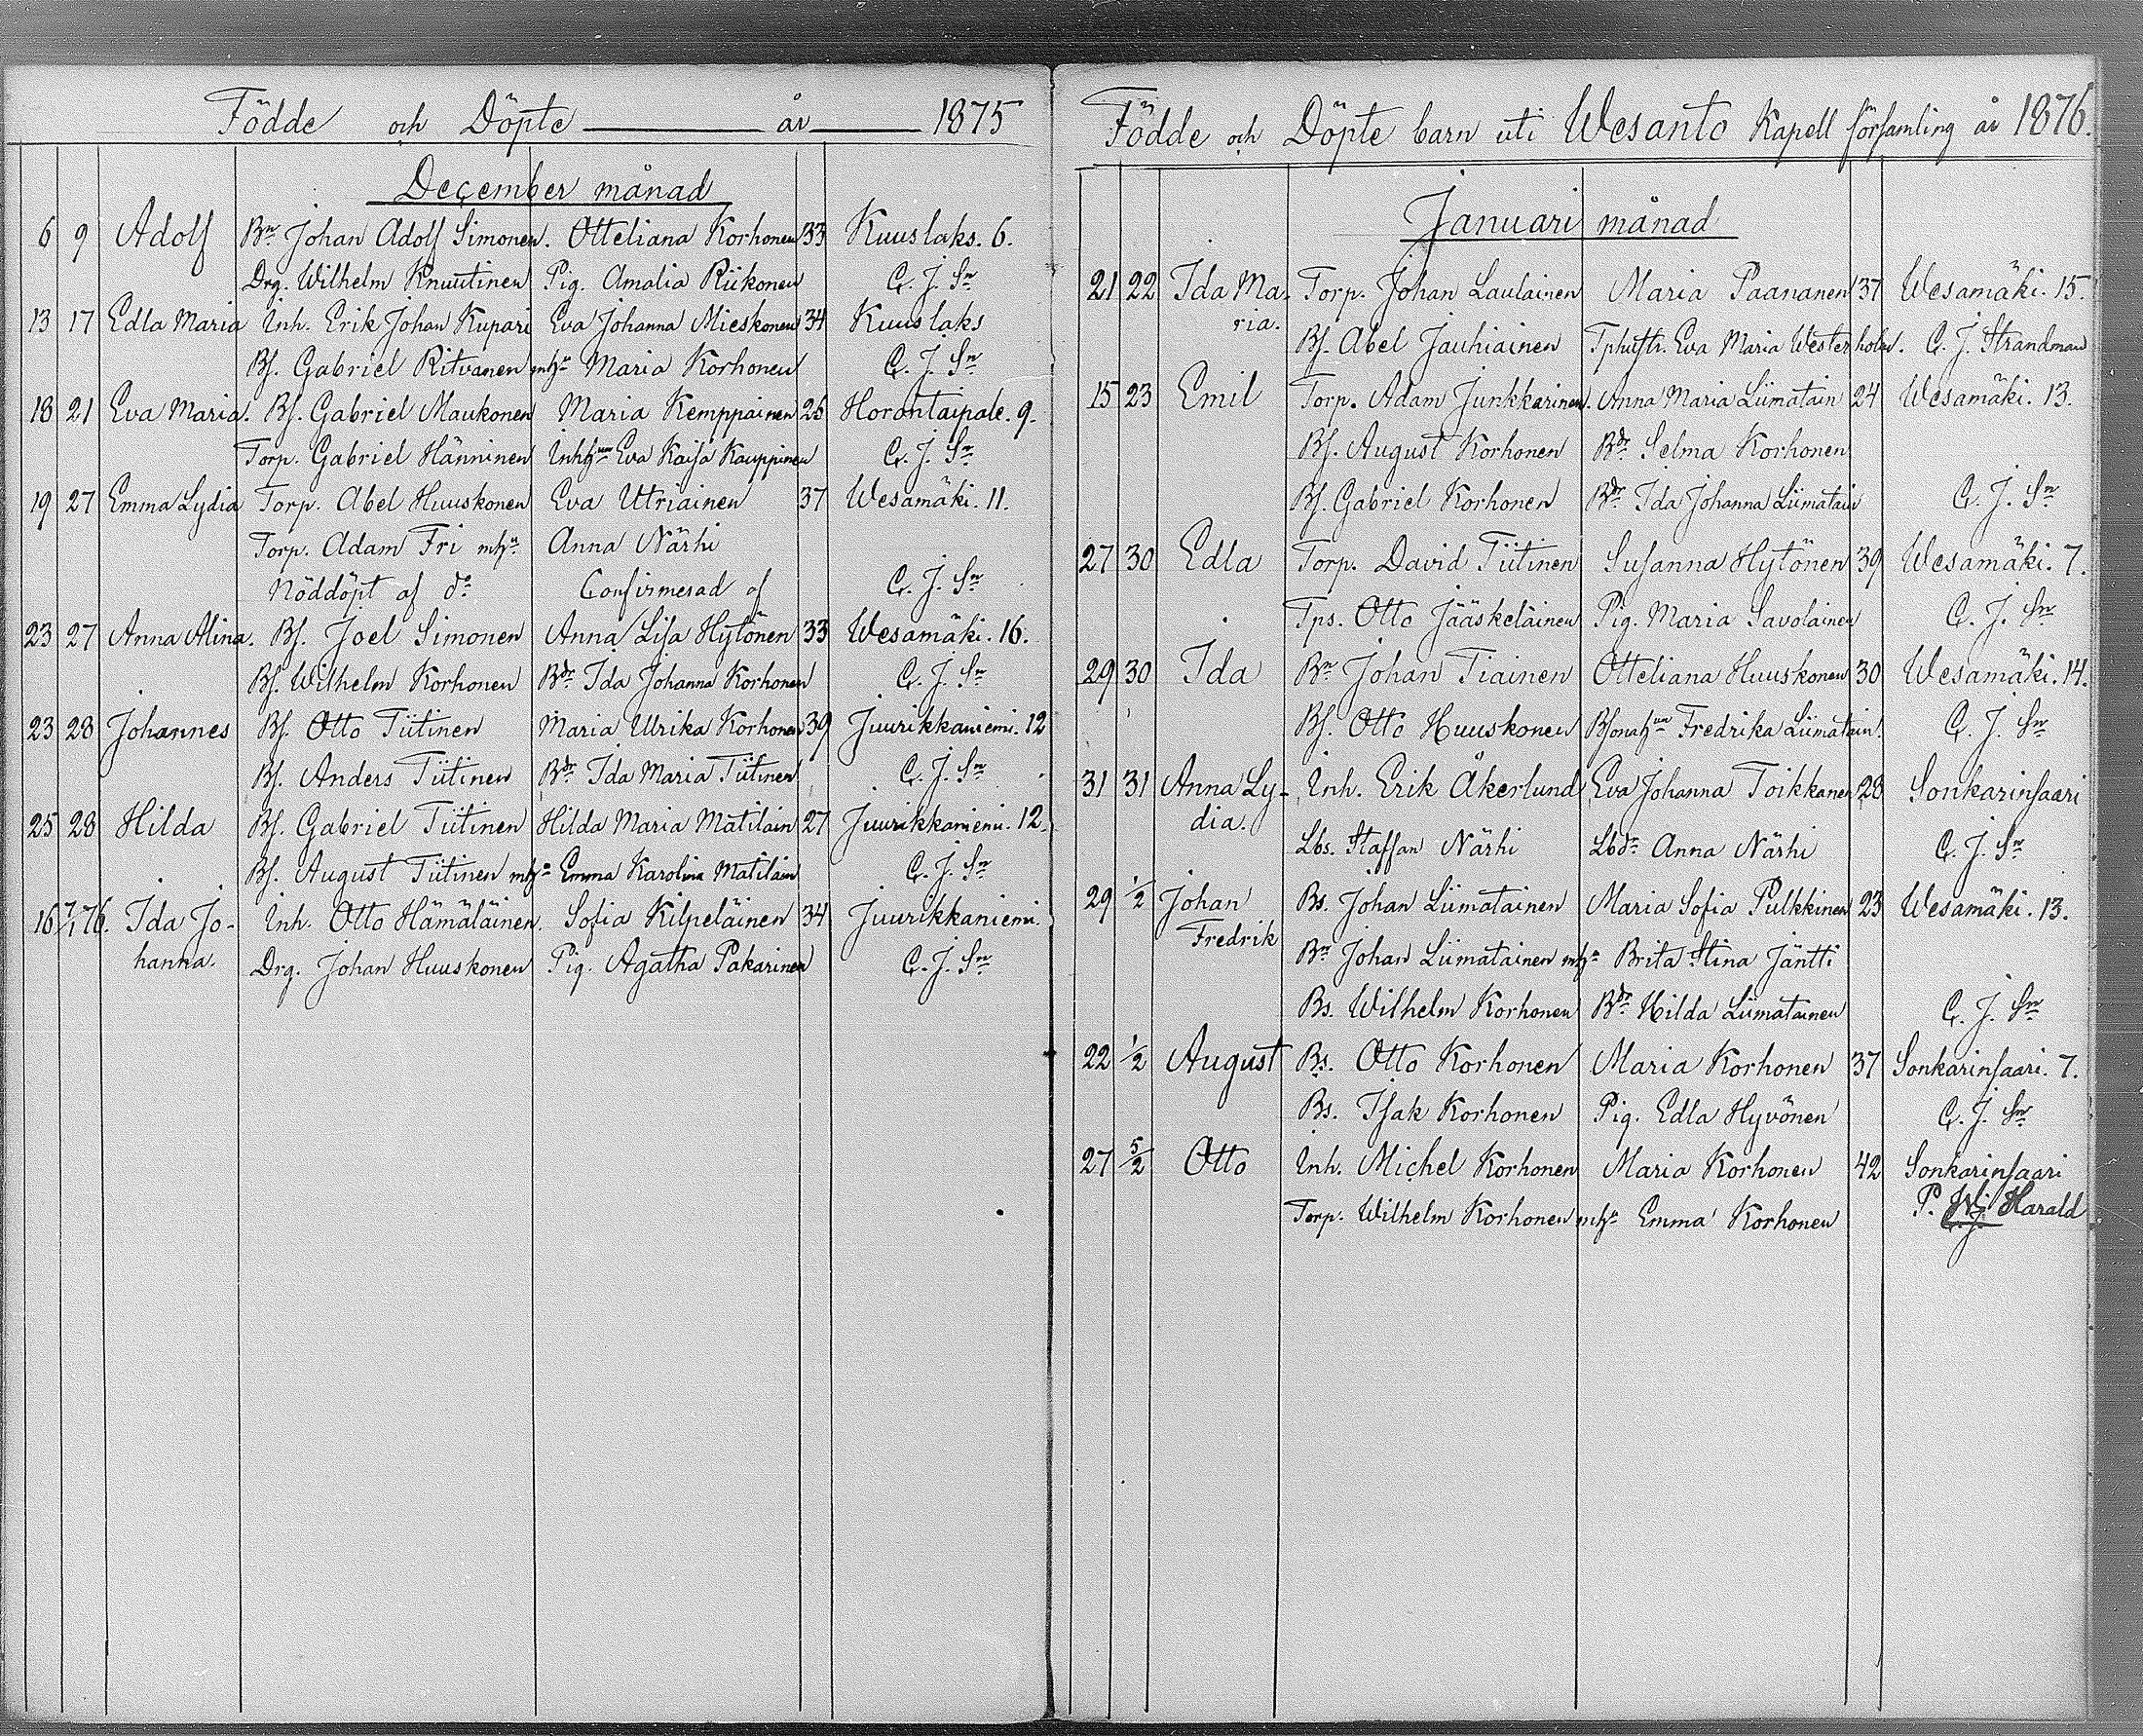 Födde och Döpte år 1875
December månad
6 9 Adolf Bn Johan Adolf Simonen. Otteliana Korhonen 33 Kuuslaks. 6.
Drg. Wilhelm Knuutinen Pig. Amalia Riikonen C. J. Sn
13 17 Edla Maria Inh. Erik Johan Kupari Eva Johanna Mieskonen 34 Kuuslaks
Bf. Gabriel Ritvanen mhn Maria Korhonen C. J. Sn
18 21 Eva Maria. Bf. Gabriel Maukonen Maria Kemppainen 25 Horontaipale. 9.
Torp. Gabriel Hänninen Inhhun Eva Kaisa Kauppinen C. J. Sn
19 27 Emma Lydia Torp. Abel Huuskonen Eva Utriainen 37 Wesamäki. 11.
Torp. Adam Fri mhn Anna Närhi
Nöddöpt af do Confirmerad af C. J. Sn
23 27 Anna Alina. Bf. Joel Simonen Anna Lisa Hytönen 33 Wesamäki. 16.
Bf. Wilhelm Korhonen Bdr Ida Johanna Korhonen C. J. Sn
23 28 Johannes Bf. Otto Tiitinen Maria Ulrika Korhonen 39 Juurikkaniemi. 12
Bf. Anders Tiitinen Bdr Ida Maria Tiitinen C. J. Sn
25 28 Hilda Bf. Gabriel Tiitinen Hilda Maria Matilain 27 Juurikkaniemi. 12.
Bf. August Tiitinen mhn Emma Karolina Matilain C. J. Sn
16 7/1 76. Ida Jo- Inh. Otto Hämäläinen. Sofia Kilpeläinen 34 Juurikkaniemi.
hanna. Drg. Johan Huuskonen Pig. Agatha Pakarinen C. J. Sn
Födde och Döpte barn uti Wesanto Kapell församling år 1876.
Januari månad
21 22 Ida Ma- Torp. Johan Laulainen Maria Paananen 37 Wesamäki. 15.
ria. Bf. Abel Jauhiainen Tphustr. Eva Maria Westerholm. C. J. Strandman
15 23 Emil Torp. Adam Junkkarinen. Anna Maria Liimatain 24 Wesamäki. 13.
Bf. August Korhonen Bdr Selma Korhonen
Bf. Gabriel Korhonen Bdr Ida Johanna Liimatain C. J. Sn
27 30 Edla Torp. David Tiitinen Susanna Hytönen 39 Wesamäki. 7.
Tps. Otto Jääskeläinen Pig. Maria Savolainen C. J. Sn
29 30 Ida Bn Johan Tiainen Otteliana Huuskonen 30 Wesamäki. 14.
Bf. Otto Huuskonen Bfonahun Fredrika Liimatain. C. J. Sn
31 31 Anna Ly- Inh. Erik Åkerlund Eva Johanna Toikkanen 28 Sonkarinsaari
dia. Lbs. Staffan Närhi Lbdr Anna Närhi C. J. Sn
29 1/2 Johan Bs. Johan Liimatainen Maria Sofia Pulkkinen 23 Wesamäki. 13.
Fredrik Bn Johan Liimatainen mhn Brita Stina Jäntti
Bs. Wilhelm Korhonen Bdr Hilda Liimatainen C. J. Sn
22 1/2 August Bs. Otto Korhonen Maria Korhonen 37 Sonkarinsaari. 7.
Bs. Isak Korhonen Pig. Edla Hyvönen C. J. Sn
27 5/2 Otto Inh. Michel Korhonen Maria Korhonen 42 Sonkarinsaari
Torp. Wilhelm Korhonen mhn Emma Korhonen P. W. Harald